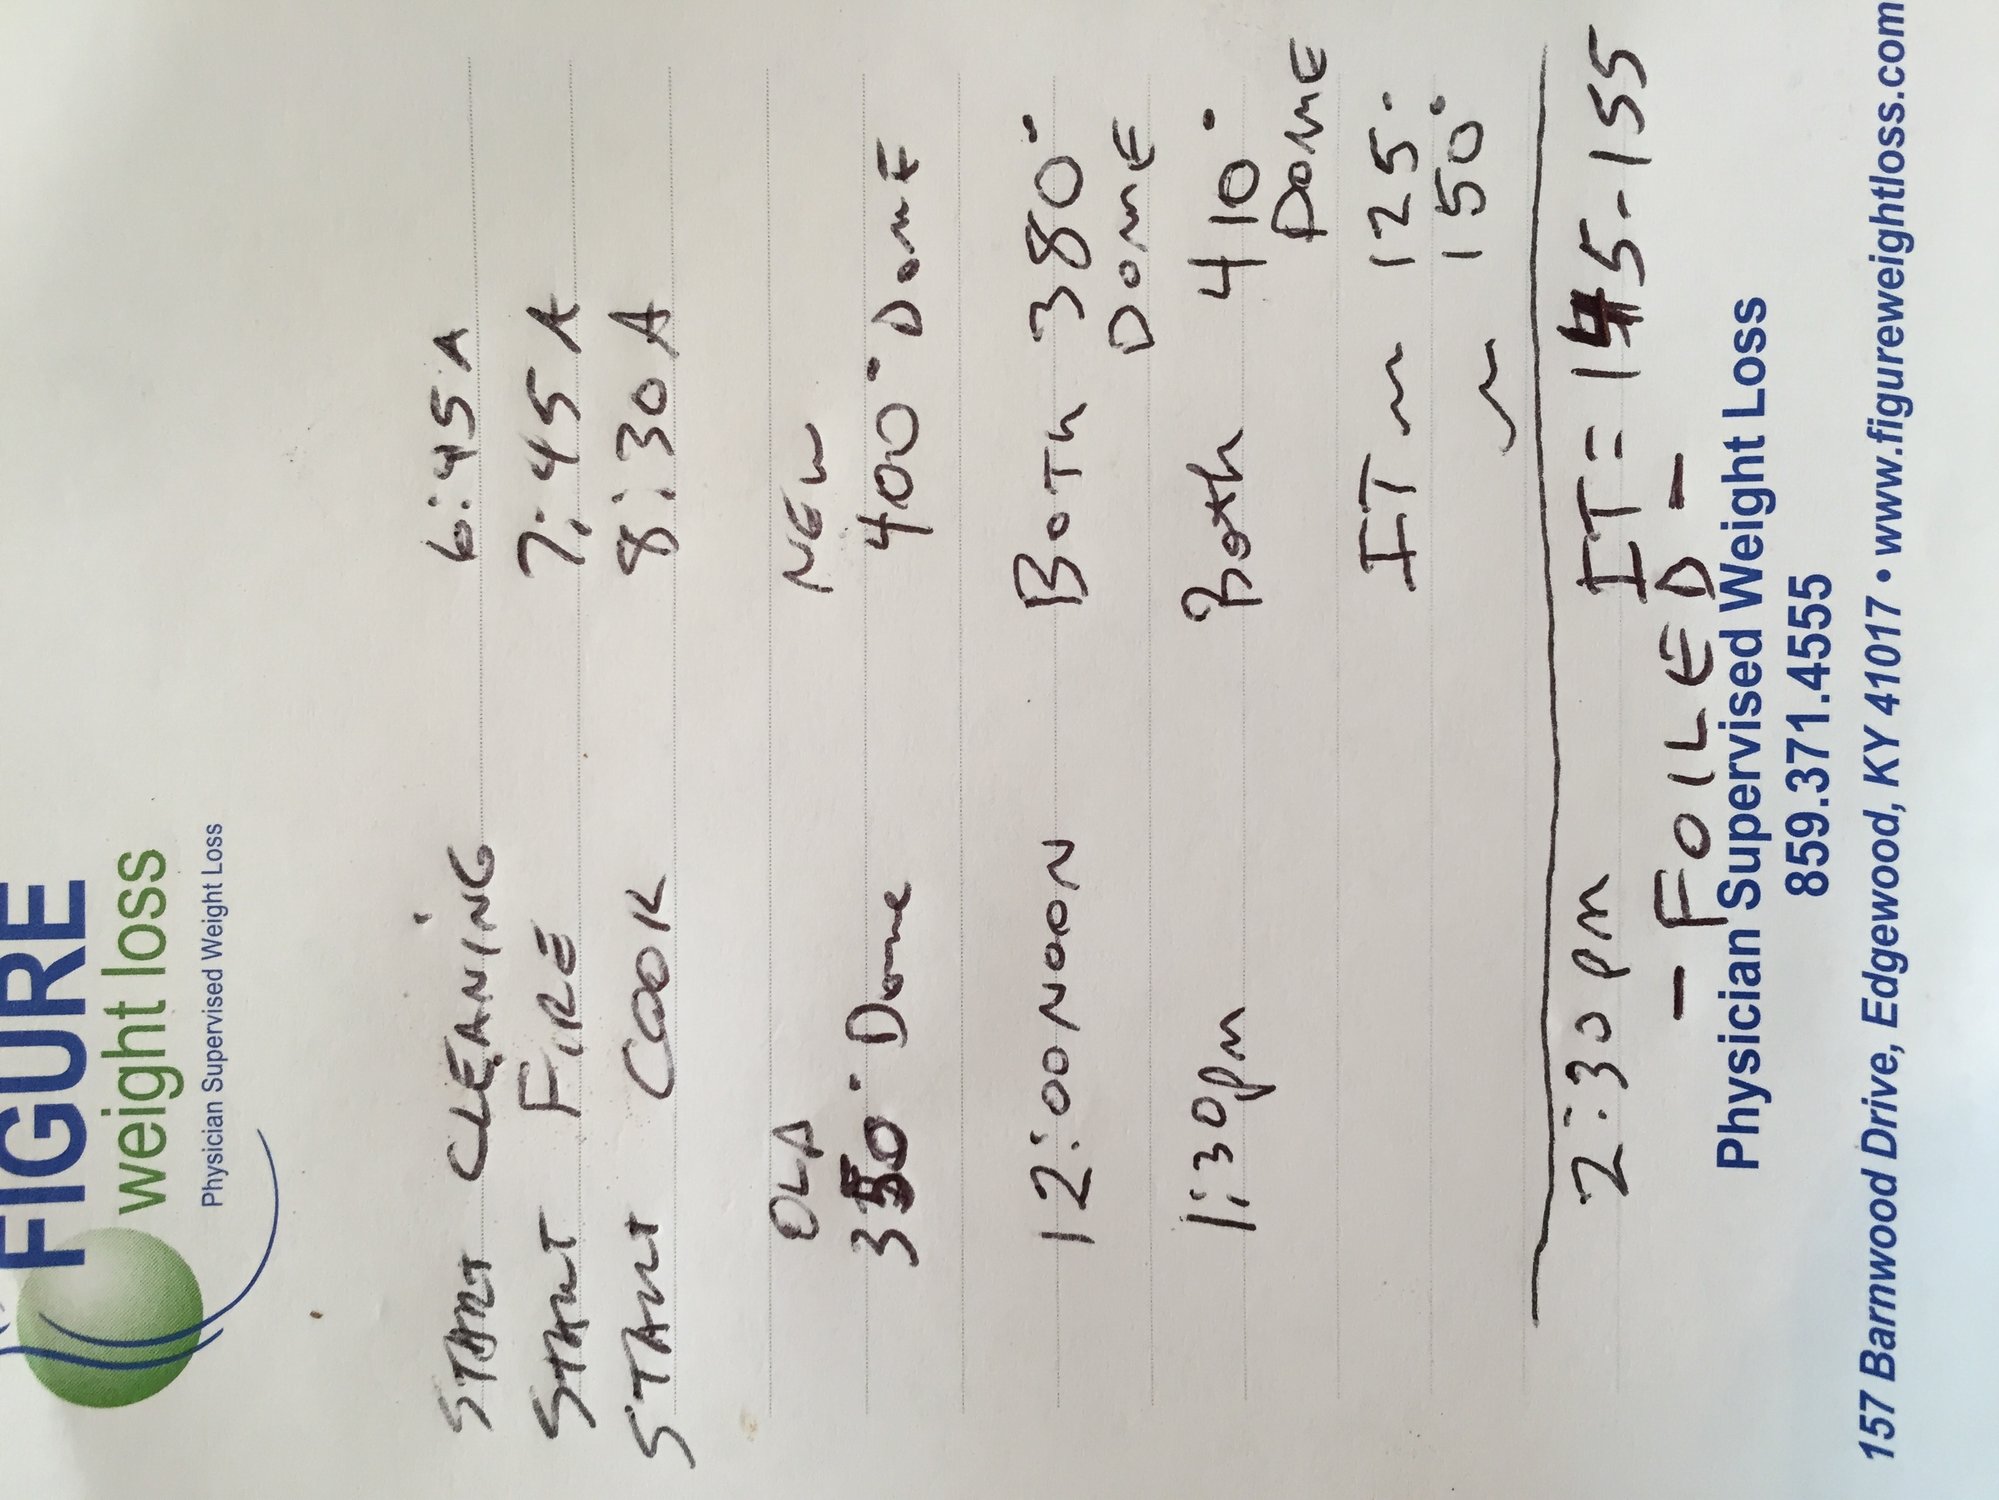 FIGURE
weight loss
Physician Supervised Weight Loss
START CLEANING 6:45 A
START FIRE 7:45 A
START COOK 8:30 A
OLD NEW
350° Dome 400° DOME
12:00 NOON BOTH 380°
DOME
1:30 pm Both 410°
DOME
IT ~ 125°
~ 150°
2:30 pm IT = 145-155
- FOILED -
Physician Supervised Weight Loss
859.371.4555
157 Barnwood Drive, Edgewood, KY 41017 • www.figureweightloss.com